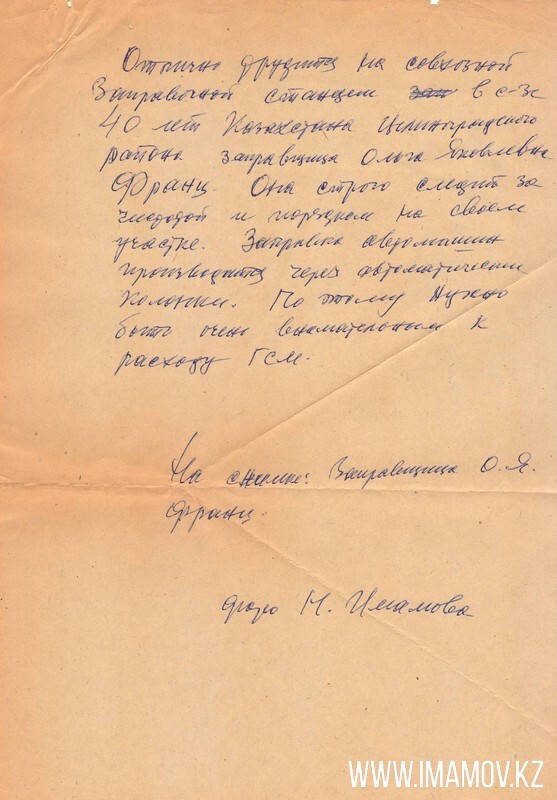 Отлично трудится на совхозной
Заправочной станции зап в с-зе
40 лет Казахстана Целиноградского
района заправщица Ольга Яковлевна
Франц. Она строго следит за
чистотой и порядком на своем
участке. Заправка автомашин
производится через автоматически
колонки. По этому нужно
быть очень внимательным к
расходу ГСМ.
На снимке: Заправщица О. Я.
Франц.
фото Н. Имамова
WWW.IMAMOV.KZ